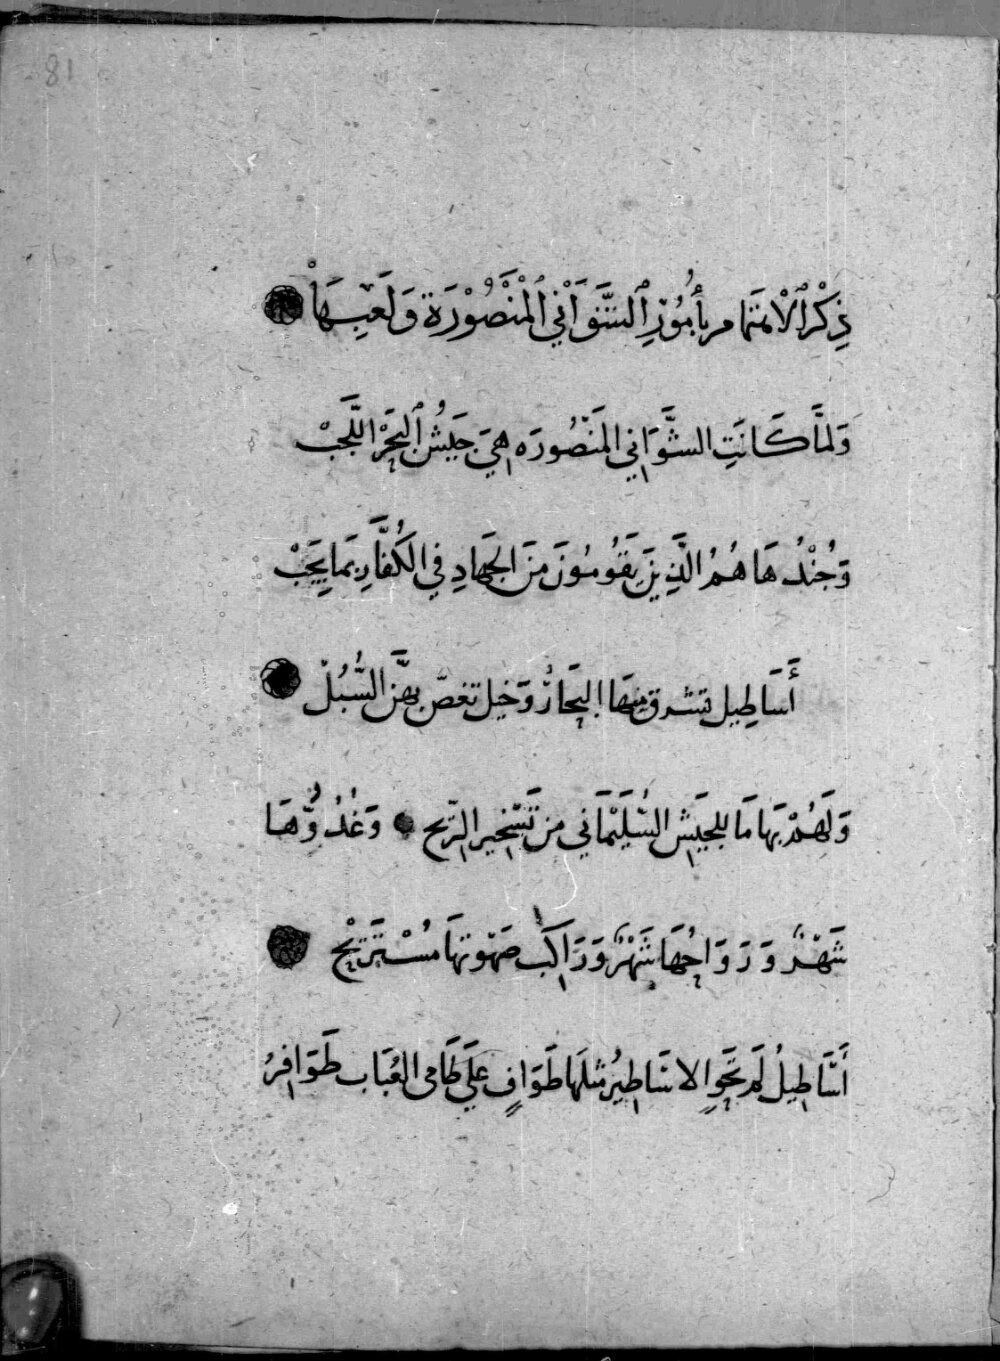 81
ذِكْرُ ٱلْاهتَمام بأُمُوُرِ ٱلشَّوَاْنِي ٱلْمَنْصُوْرَة وَلَعِبِهَاْ
وَلمَّا كَانَتِ الشَّوَانِي المَنْصُورَه هِيَ جَيشُ ٱلبَحَرْ اللَّجبْ
وَجُنْدُهَا هُمُ الَّذِينَ يَقُومُونَ مِنَ الجَهادِ فِي الكُفَّارِ بمَا يَجَبْ
أَسَاطِيل تشرق مِنهَا البِحَارُ وَخيل تغصّ بهَّنَ السُّبُلْ
وَلَهُمْ بَهَا مَا للجَيشِ السُّلَيْمَاني مِن تَسْخِير الرّيح وَغُدُوُّهَا
شَهْرٌ وَرَوَاحُهَا شَهْرٌ وَرَاكِب صَهْوتهَا مُسْتَرِيْح
أَسَاطِيلُ لَم تَحَوِ الاسَاطِيرُ مثلَهَا طَوَافٍ عَلَى طَامى العُبَاب طَوَافِرُ